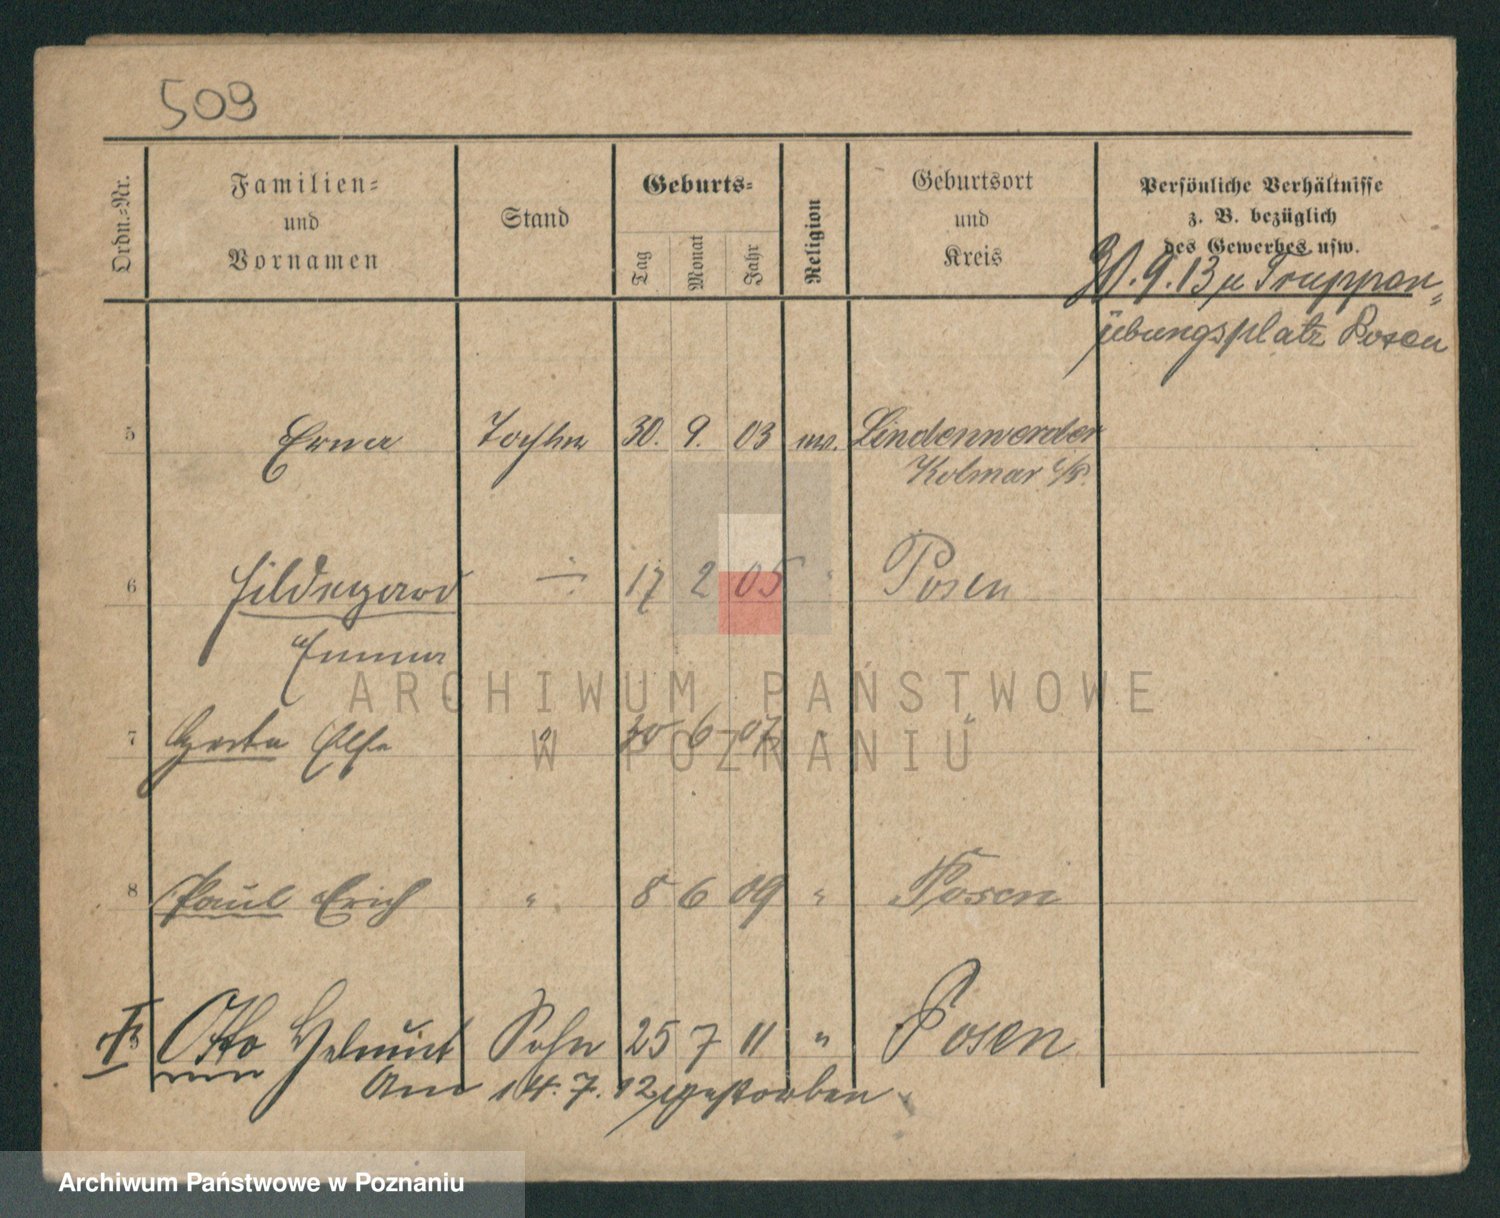 509
Ordn.-Nr.
Familien-
und
Vornamen
Stand
Geburts-
Tag
Monat
Jahr
Religion
Geburtsort
und
Kreis
Persönliche Verhältnisse
z. B. bezüglich
des Gewerbes usw.
30.9.13 Truppen-
übungsplatz Posen
5 Erna Tochter 30. 9. 03 ev. Lindenwerder
Kolmar i/P.
6 Hildegard 17 2 05 " Posen
Emma
7 Gerta Else " 30 6 07 "
8 Paul Erich " 8 6 09 " Posen
Otto Helmut Sohn 25 7 11 " Posen
Am 14.7.12 gestorben
ARCHIWUM PAŃSTWOWE
W POZNANIU
Archiwum Państwowe w Poznaniu